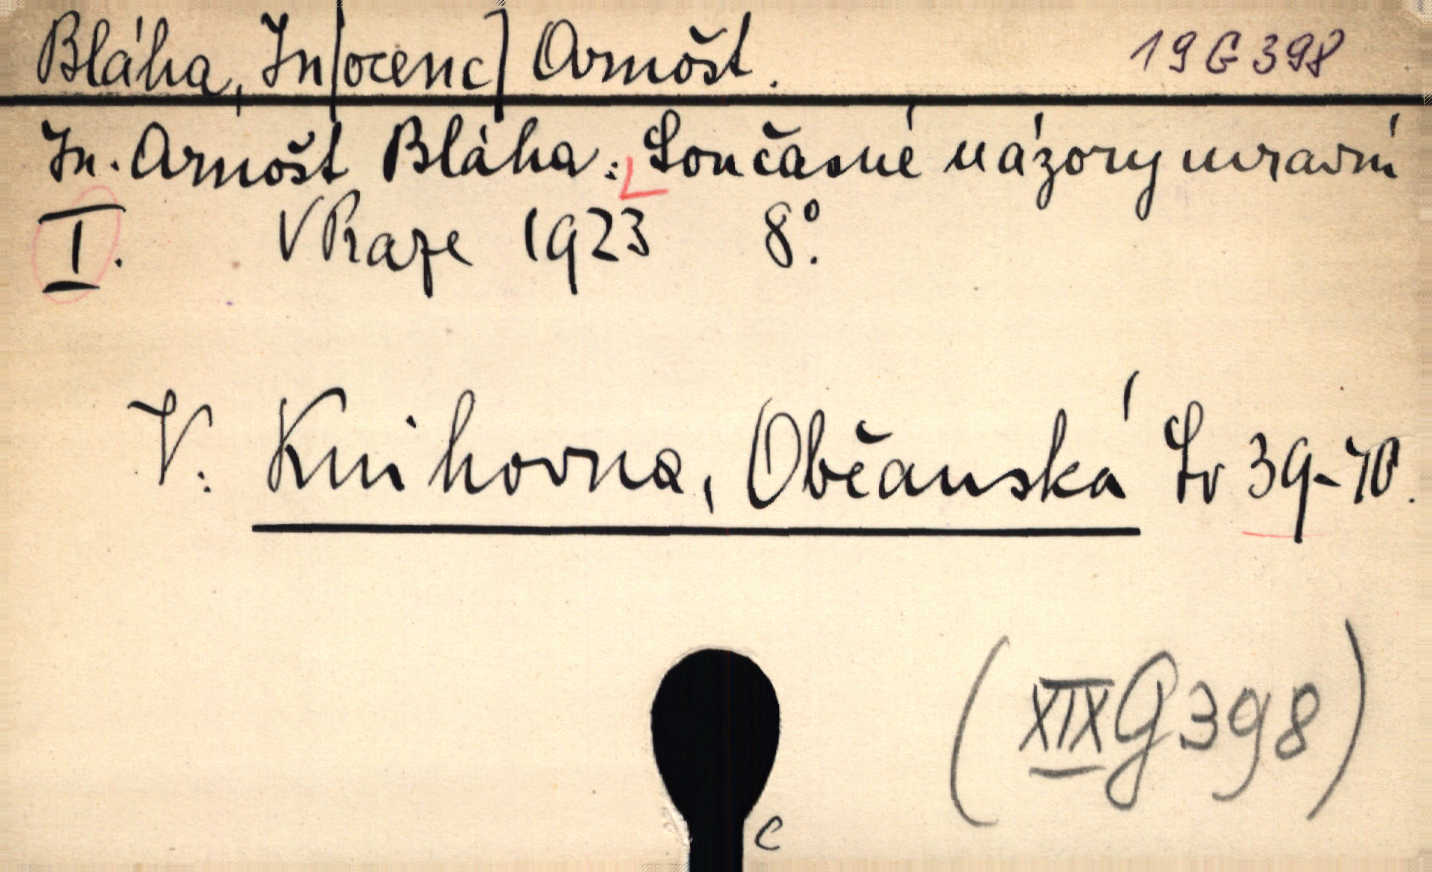 Bláha, In[ocenc] Arnošt. 19 G 398
In. Arnošt Bláha: Současné názory mravní
I. V Praze 1923 8°.
V. Knihovna, Občanská Sv 39-40.
(XIX G 398)
C